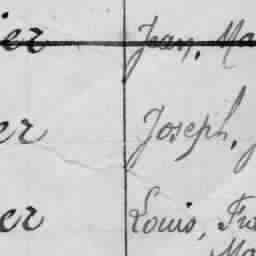 ier Jean, Ma
er Joseph, J
er Louis, Fra
Ma